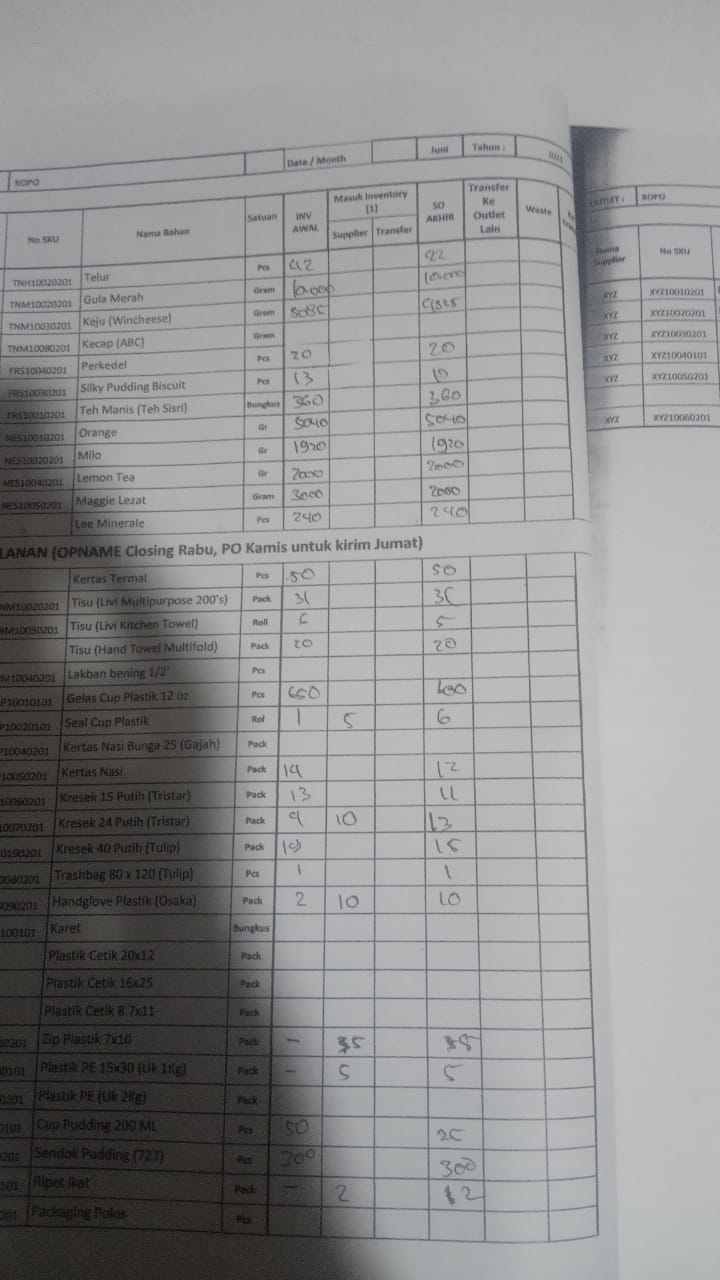 KOPO Date / Month Juni Tahun : 2021
No SKU Nama Bahan Satuan INV AWAL Masuk Inventory (1) Supplier Transfer SO AKHIR Transfer Ke Outlet Lain Waste
TNH10020201 Telur Pcs 92 22
TNM10020201 Gula Merah Gram 10.000 10.000
TNM10030201 Keju (Wincheese) Gram
TNM10080201 Kecap (ABC) Gram
FRS10040201 Perkedel Pcs 20 20
FRS10030201 Silky Pudding Biscuit Pcs 13 10
FRS10010201 Teh Manis (Teh Sisri) Bungkus 360 360
NES10010201 Orange Gr 5040 5040
NES10020201 Milo Gr 1920 1920
NES10040201 Lemon Tea Gr 2000 2000
NES10050201 Maggie Lezat Gram 3000 2000
Lee Minerale Pcs 240 240
LANAN (OPNAME Closing Rabu, PO Kamis untuk kirim Jumat)
Kertas Termal Pcs 50 50
NM10020201 Tisu (Livi Multipurpose 200's) Pack
NM10030201 Tisu (Livi Kitchen Towel) Roll 5
Tisu (Hand Towel Multifold) Pack 20 20
M10040201 Lakban bening 1/2' Pcs
P10010101 Gelas Cup Plastik 12 oz Pcs 650 600
P10020101 Seal Cup Plastik Rol 1 5 6
10040201 Kertas Nasi Bunga 25 (Gajah) Pack
10050201 Kertas Nasi Pack 19 12
10060201 Kresek 15 Putih (Tristar) Pack 13 11
10070201 Kresek 24 Putih (Tristar) Pack 9 10 13
0190201 Kresek 40 Putih (Tulip) Pack 15
0080201 Trashbag 80 x 120 (Tulip) Pcs 1 1
090201 Handglove Plastik (Osaka) Pack 2 10 10
100101 Karet Bungkus
Plastik Cetik 20x12 Pack
Plastik Cetik 16x25 Pack
Plastik Cetik 8.7x11 Pack
0201 Zip Plastik 7x10 Pack - 5 5
0101 Plastik PE 15x30 (Uk 1Kg) Pack - 5 5
0201 Plastik PE (Uk 2Kg) Pack
0101 Cup Pudding 200 ML Pcs 50 25
201 Sendok Pudding (727) Pcs 300 300
101 Ripet Ikat Pack - 2 2
201 Packaging Polos Pcs
OUTLET : KOPO
Nama Supplier No SKU
XYZ XYZ10010201
XYZ XYZ10020201
XYZ XYZ10030201
XYZ XYZ10040101
XYZ XYZ10050201
XYZ XYZ10060201